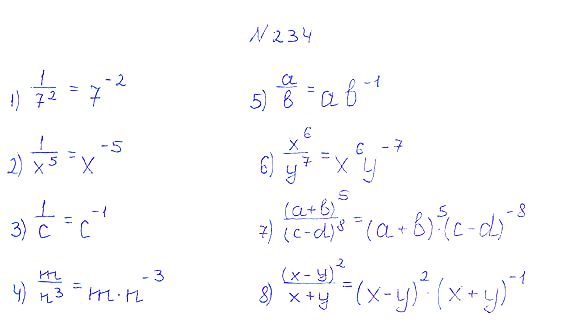 N 234
1) 1/7² = 7⁻²
2) 1/x⁵ = x⁻⁵
3) 1/c = c⁻¹
4) m/n³ = m·n⁻³
5) a/b = ab⁻¹
6) x⁶/y⁷ = x⁶y⁻⁷
7) (a+b)⁵/(c-d)⁸ = (a+b)⁵·(c-d)⁻⁸
8) (x-y)²/x+y = (x-y)²·(x+y)⁻¹